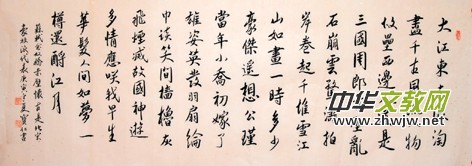 大江東去浪淘
盡千古風流人物
故壘西邊人道是
三國周郎赤壁亂
石崩雲驚濤拍
岸卷起千堆雪江
山如畫一時多少
豪傑遙想公瑾
當年小喬初嫁了
雄姿英發羽扇綸
巾談笑間檣櫓灰
飛煙滅故國神遊
多情應咲我早生
華髮人間如夢一
樽還酹江月
蘇軾念奴嬌赤壁懷古是北宋
豪放派代表庚寅夏書
中华文教网